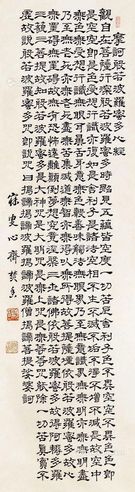 摩訶般若波羅蜜多心經
觀自在菩薩行深般若波羅蜜多時照見五蘊皆空度一切苦厄舍利子色不異空空不異色色即
是空空即是色受想行識亦復如是舍利子是諸法空相不生不滅不垢不淨不增不減是故空中
無色無受想行識無眼耳鼻舌身意無色聲香味觸法無眼界乃至無意識界無無明亦無無明盡
乃至無老死亦無老死盡無苦集滅道無智亦無得以無所得故菩提薩埵依般若波羅蜜多故心
無罣礙無罣礙故無有恐怖遠離顛倒夢想究竟涅槃三世諸佛依般若波羅蜜多故得阿耨多羅
三藐三菩提故知般若波羅蜜多是大神咒是大明咒是無上咒是無等等咒能除一切苦真實不
虛故說般若波羅蜜多咒即說咒曰揭諦揭諦波羅揭諦波羅僧揭諦菩提薩婆訶
叟心齋